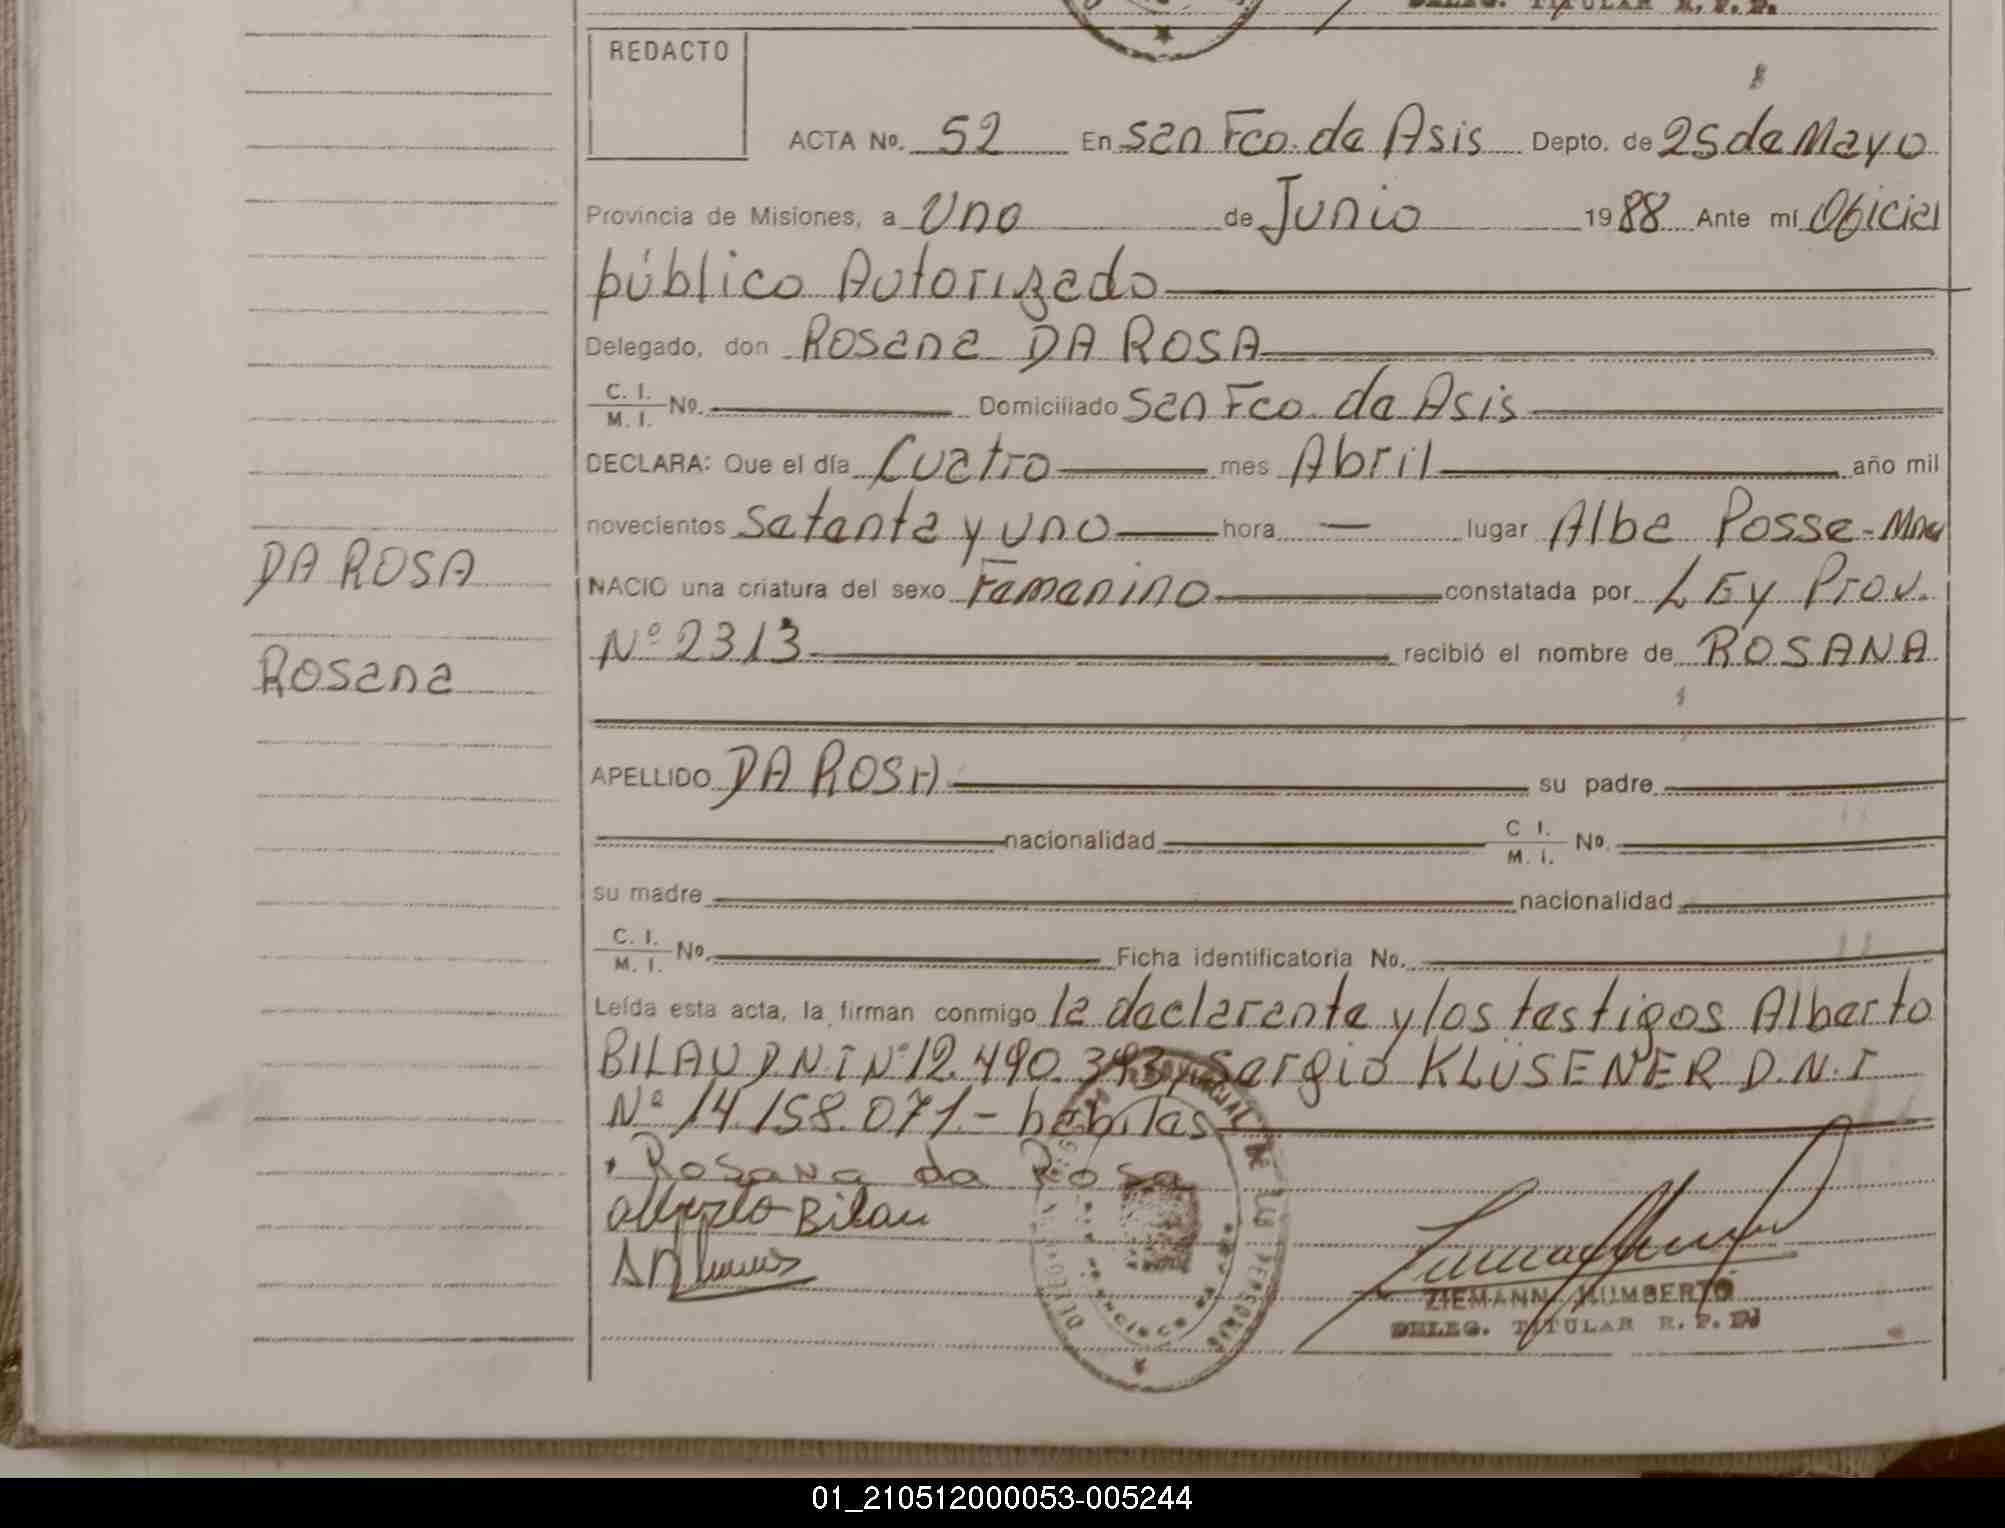 DELEG. TITULAR R. P. P.
REDACTO
ACTA No. 52 En San Fco. de Asis Depto. de 25 de Mayo
Provincia de Misiones, a Uno de Junio 1988 Ante mí Oficial
público Autorizado
Delegado, don Rosana DA ROSA
C. I. / M. I. No. Domiciliado San Fco. de Asis
DECLARA: Que el día Cuatro mes Abril año mil
novecientos Setenta y uno hora — lugar Alba Posse - Mnes
DA ROSA
NACIO una criatura del sexo Femenino constatada por LEy Prov.
Rosana
Nº 2313 recibió el nombre de ROSANA
APELLIDO DA ROSA su padre
nacionalidad C I. / M. I. No.
su madre nacionalidad
C. I. / M. I. No. Ficha identificatoria No.
Leída esta acta, la firman conmigo la declarante y los testigos Alberto
BILAU D N I Nº 12.490.393, Sergio KLÜSENER D.N.I
Nº 14.158.071 - habiles
Rosana da Rosa
Alberto Bilau
ZIEMANN HUMBERTO
DELEG. TITULAR R. P. P.
01_210512000053-005244